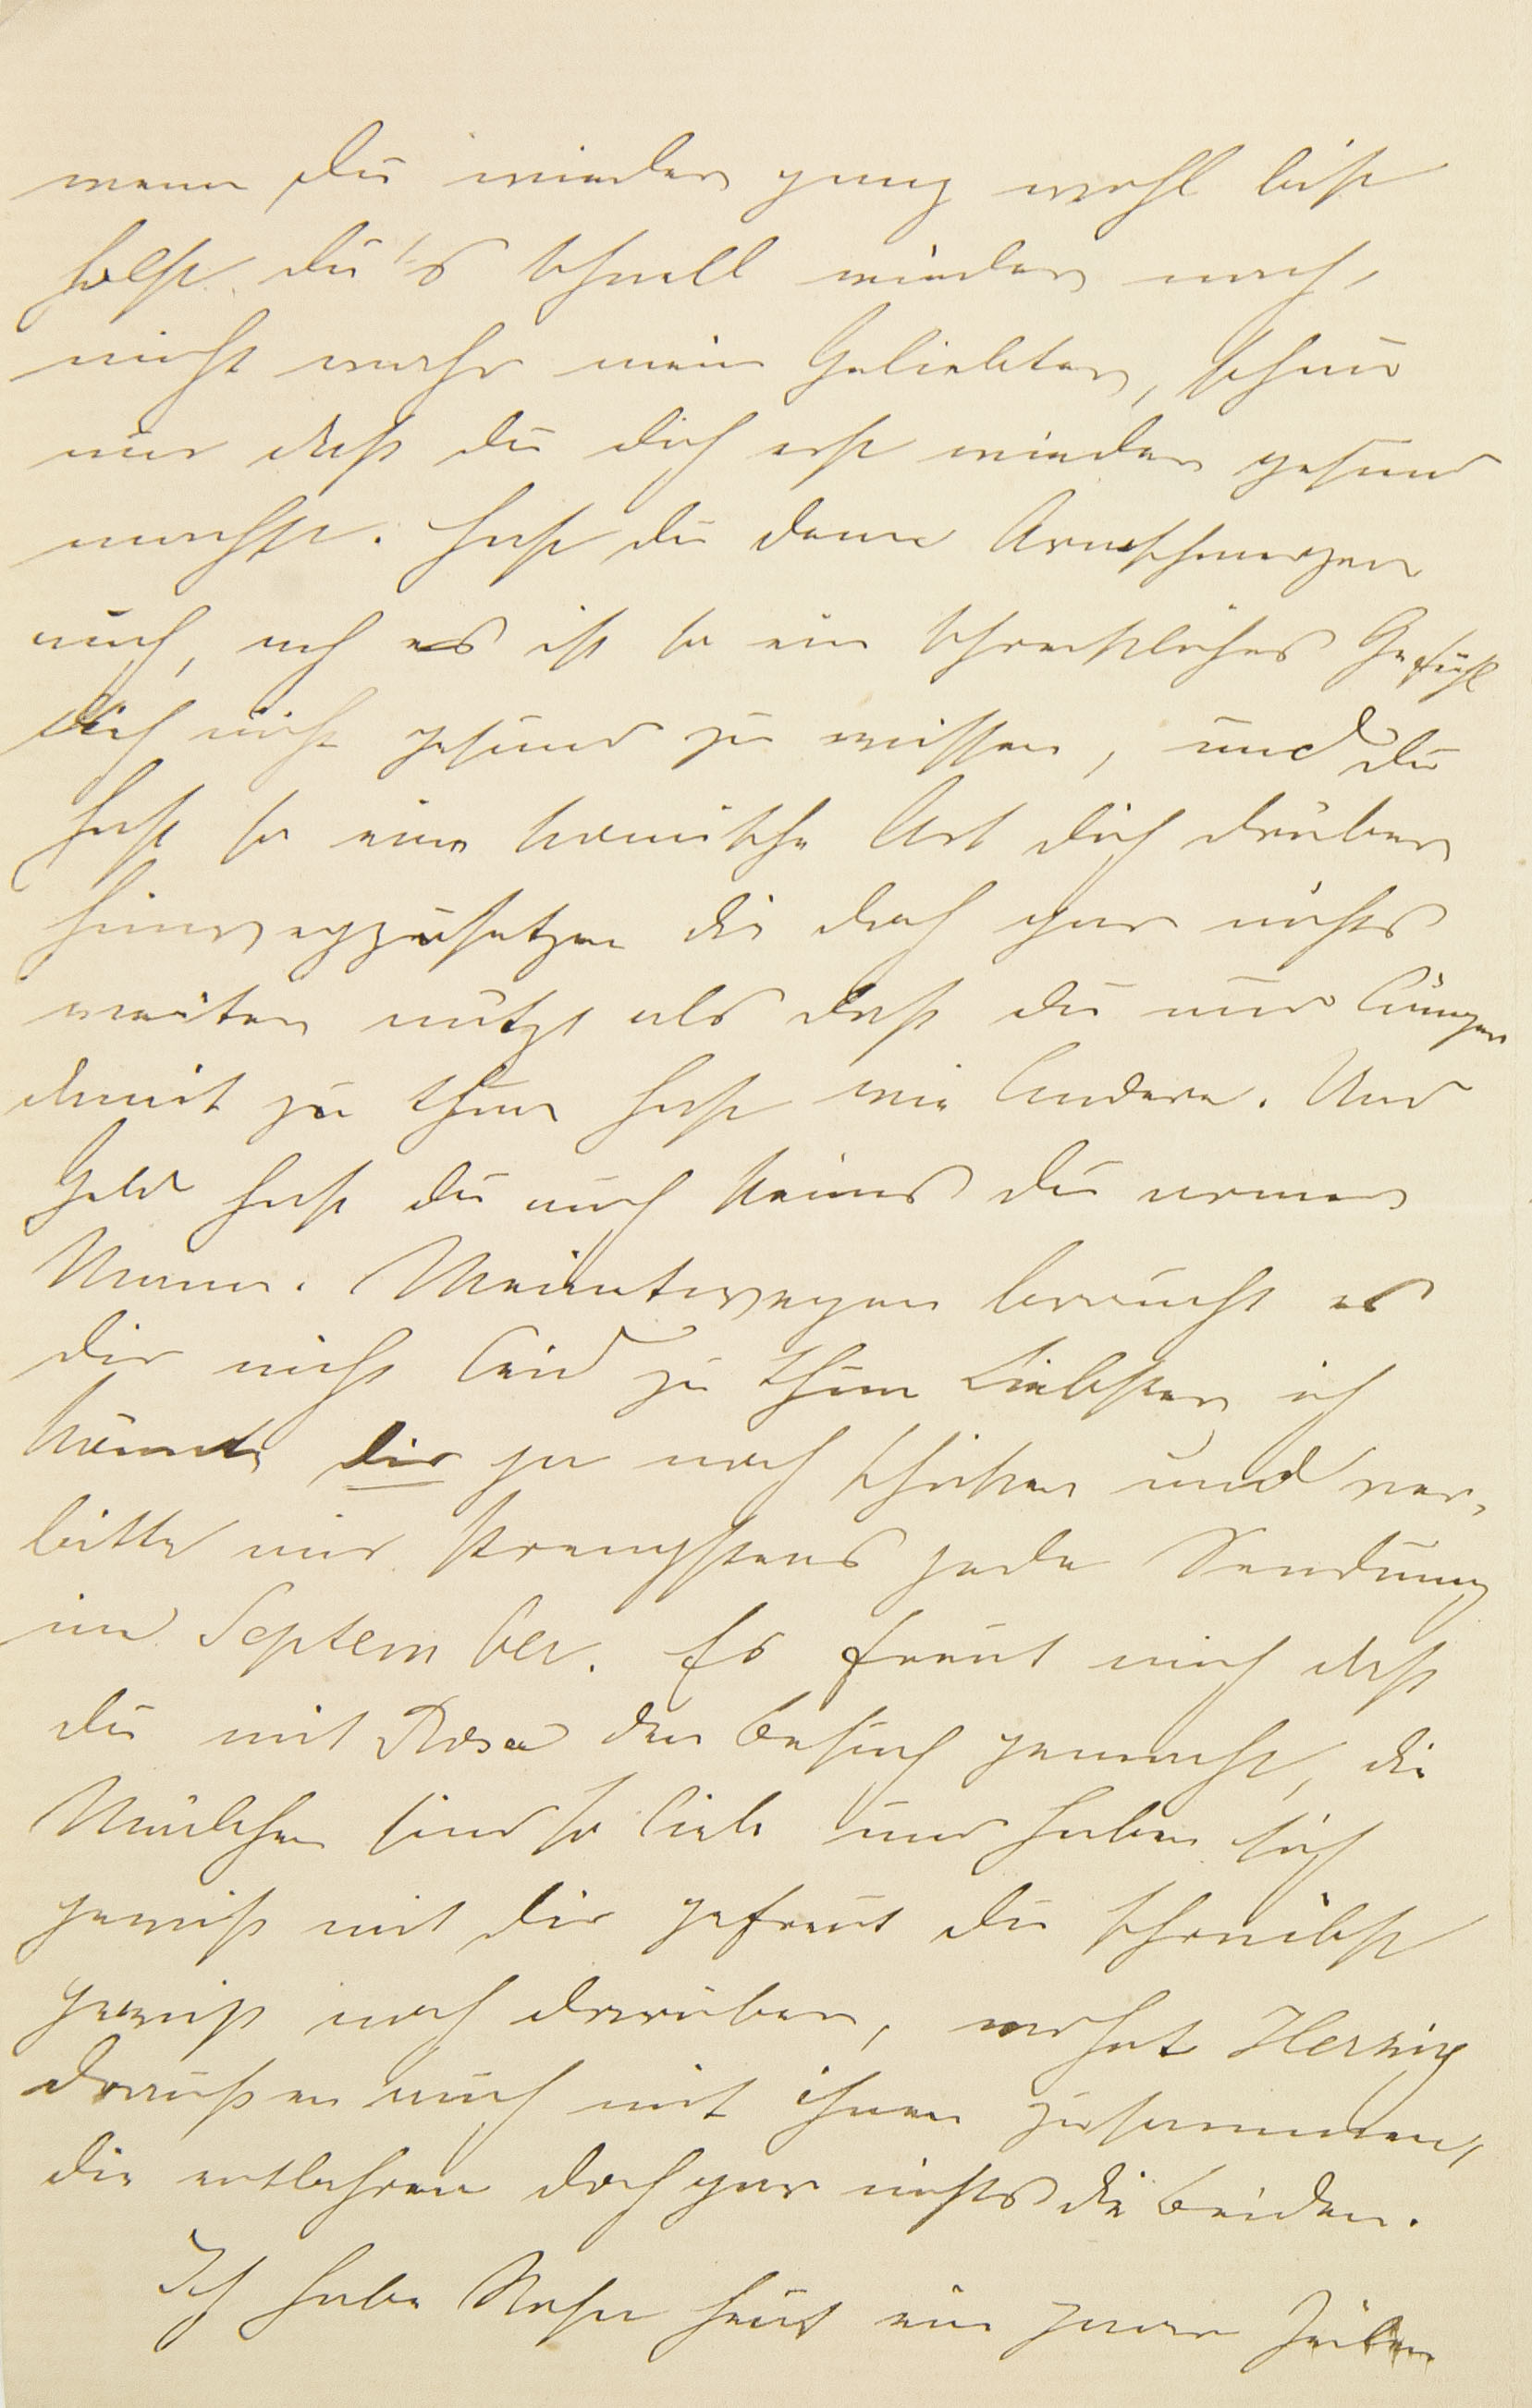 wenn du wieder ganz wohl bist
holst du's schnell wieder nach,
nicht wahr mein Geliebter, schau
nur daß du dich erst wieder gesund
machst. Hast du denn Armschmerzen
auch, ach es ist so ein schreckliches Gefühl
dich nicht gesund zu wissen, und du
hast so eine komische Art dich drüber
hinwegzusetzen die doch gar nichts
weiter nützt als daß du nur länger
damit zu thun hast wie Andere. Und
Geld hast du auch keines du armer
Mann. Meinetwegen braucht es
dir nicht leid zu thun Liebster ich
könnte dir ja noch schicken und ver-
bitte mir strengstens jede Sendung
im September. Es freut mich daß
du mit Rosa den Besuch gemacht, die
Mädchen sind so lieb und haben sich
gewiß mit dir gefreut du schreibst
gewiß noch darüber, wohnt Herzig
draußen auch mit ihnen zusammen,
die entbehren doch gar nichts die beiden.
Ich habe Rosa heut ein paar Zeilen